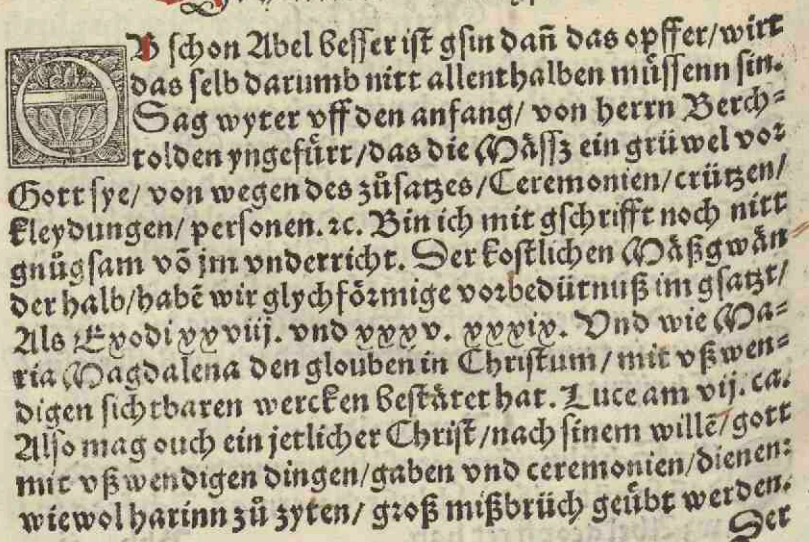 OB schon Abel besser ist gsin dañ das opffer/wirt
das selb darumb nitt allenthalben müssenn sin.
Sag wyter vff den anfang/ von herrn Berch⸗
tolden yngefürt/das die Mässz ein grüwel vor
Gott sye/ von wegen des zůsatzes/Ceremonien/crützen/
kleydungen/ personen. ꝛc. Bin ich mit gschrifft noch nitt
gnůgsam võ jm vnderricht. Der kostlichen Mäßgwän
der halb/habẽ wir glychförmige vorbedütnuß im gsatzt/
Als Exodi xxviij. vnd xxxv. xxxix. Vnd wie Ma⸗
ria Magdalena den glouben in Christum/ mit vßwen⸗
digen sichtbaren wercken bestätet hat. Luce am vij. ca.
Also mag ouch ein jetlicher Christ/nach sinem willẽ/gott
mit vßwendigen dingen/gaben vnd ceremonien/dienen:
wiewol harinn zů zyten/ groß mißbrüch geübt werden.
Der